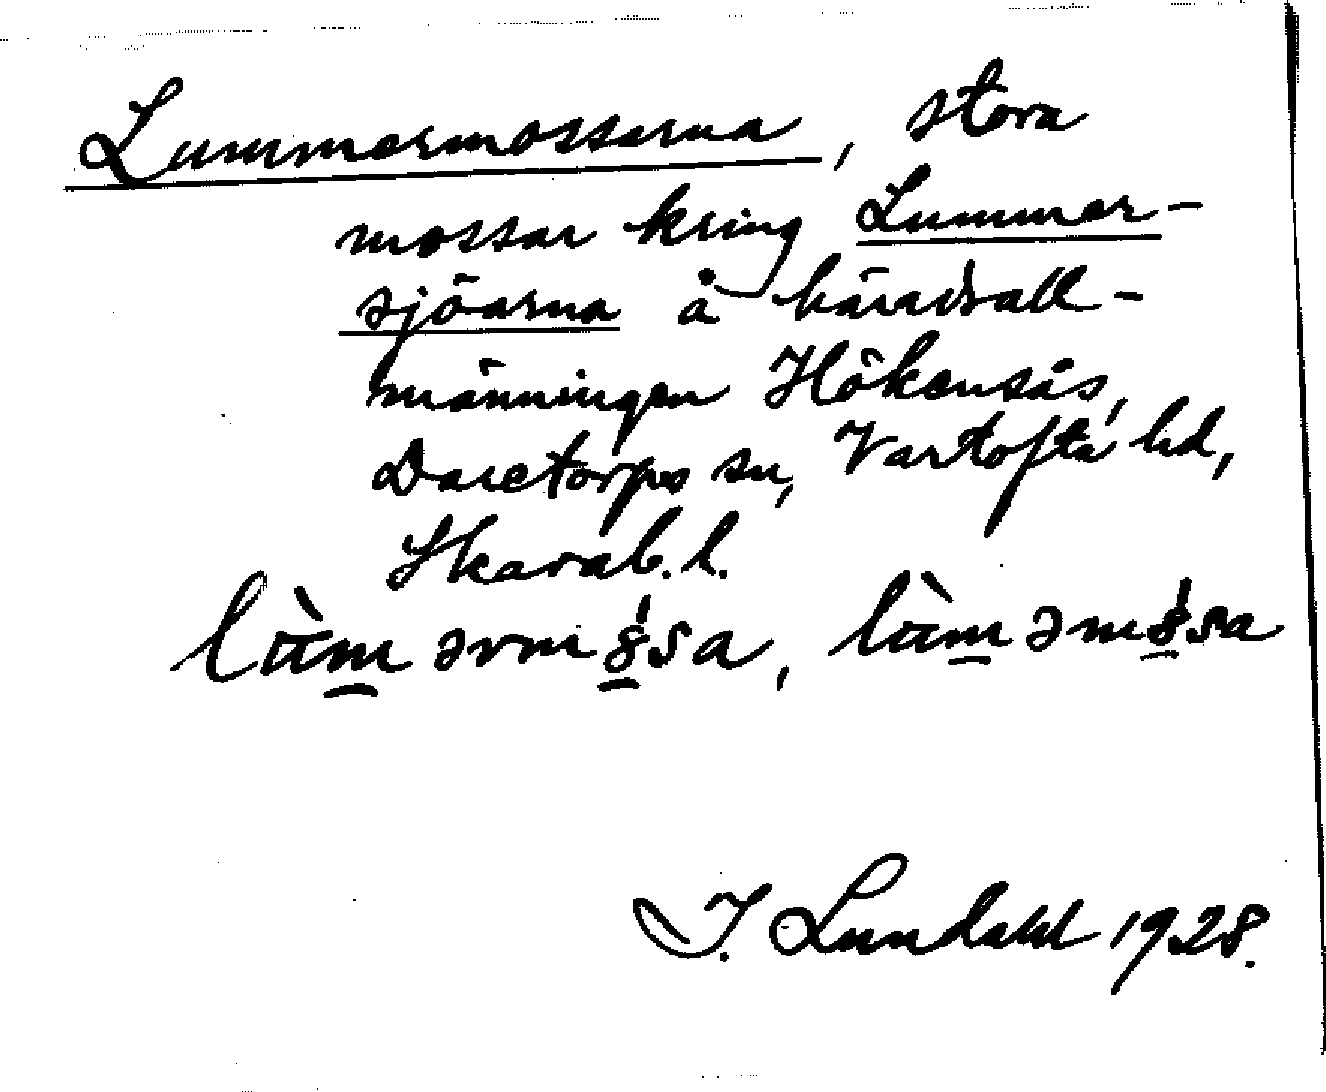 Lummermossarna, stora
mossar kring Lummer-
sjöarna å häradsall-
männingen Hökensås,
Daretorps sn, Vartofta hd,
Skarab. l.
I. Lundahl 1928.